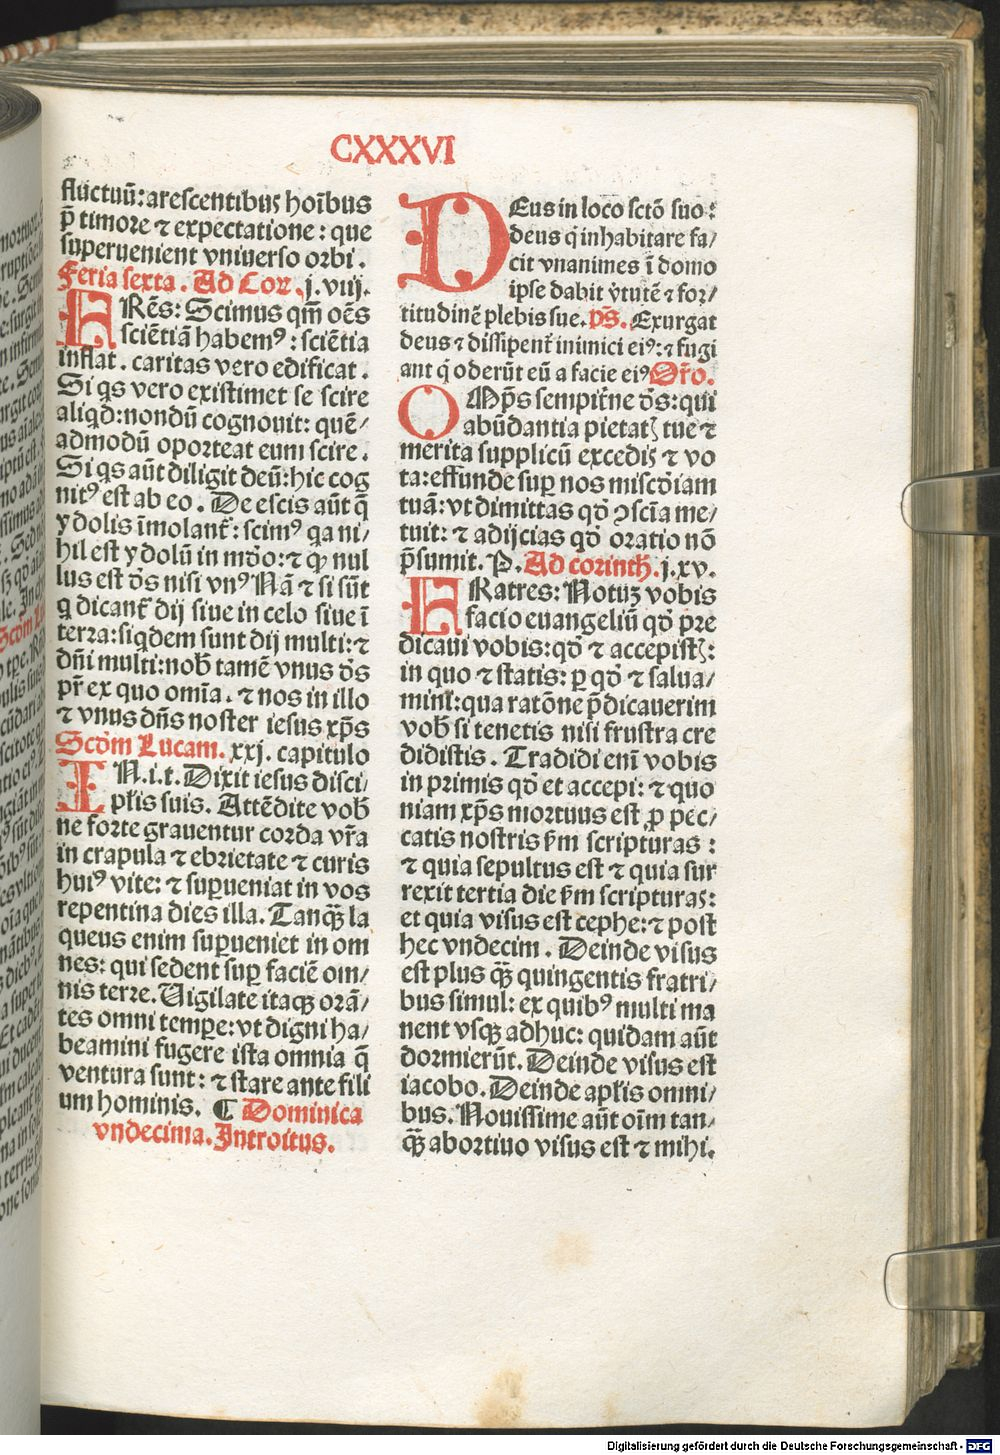 CXXXVI
fluctuū: arescentibus hoībus
p̄ timore ⁊ expectatione: que
superuenient vniuerso orbi.
Feria sexta. Ad Cor. j. viij.
FRēs: Scimus qm̄ oēs
sciētiā habem⁹: sciētia
inflat. caritas vero edificat.
Si q̄s vero existimet se scire
aliqd: nondū cognouit: quē/
admodū oporteat eum scire.
Si qs aūt diligit deū: hic cog
nit⁹ est ab eo. De escis aūt q̄
ydolis īmolant̄: scim⁹ qa ni/
hil est ydolū in mūdo: ⁊ ꝙ nul
lus est de᷒s nisi vn⁹ Nā ⁊ si sūt
q dicant̄ dij siue in celo siue ī
terra: siqdem sunt dij multi: ⁊
dn̄i multi: nob̄ tamē vnus de᷒s
pr̄ ex quo om̄ia. ⁊ nos in illo
⁊ vnus dn̄s noster iesus xp̄s
Scd̄m Lucam. xxj. capitulo
IN.i.t. Dixit iesus disci/
pl̄is suis. Attēdite vob̄
ne forte grauentur corda vr̄a
in crapula ⁊ ebrietate ⁊ curis
hui⁹ vite: ⁊ suꝑueniat in vos
repentina dies illa. Tanqȝ la
queus enim suꝑueniet in om
nes: qui sedent suꝑ faciē om/
nis terre. Uigilate itaqȝ orā/
tes omni temꝑe: vt digni ha/
beamini fugere ista omnia q̄
ventura sunt: ⁊ stare ante fili
um hominis. ¶ Dominica
vndecima. Introitus.
DEus in loco sctō suo:
deus q̇ inhabitare fa/
cit vnanimes ī domo
ipse dabit v̇tutē ⁊ for/
titudinē plebis sue. p̄s. Exurgat
deus ⁊ dissipent̄ inimici ei⁹: ⁊ fugi
ant q̇ oderūt eū a facie ei⁹ Or̄o.
OMp̄s sempiṫne de᷒s: qui
abūdantia pietatꝭ tue ⁊
merita supplicū excedis ⁊ vo
ta: effunde suꝑ nos misc̄diam
tuā: vt dimittas qd̄ ↄscīa me/
tuit: ⁊ adijcias qd̄ oratio nō
p̄sumit. P. Ad corinth̄. j. xv.
FRatres: Notuȝ vobis
facio euangeliū qd̄ pre
dicaui vobis: qd̄ ⁊ accepistꝭ:
in quo ⁊ statis: ꝑ qd̄ ⁊ salua/
mini: qua ratōne p̄dicauerim
vob̄ si tenetis nisi frustra cre
didistis. Tradidi enī vobis
in primis qd̄ et accepi: ⁊ quo
niam xp̄s mortuus est ꝓ pec/
catis nostris ẜm scripturas:
⁊ quia sepultus est ⁊ quia sur
rexit tertia die ẜm scripturas:
et quia visus est cephe: ⁊ post
hec vndecim. Deinde visus
est plus qȝ quingentis fratri/
bus simul: ex quib⁹ multi ma
nent vsqȝ adhuc: quidam aūt
dormierūt. Deinde visus est
iacobo. Deinde apl̄is omni/
bus. Nouissime aūt oīm tan/
qȝ abortiuo visus est ⁊ mihi.
Digitalisierung gefördert durch die Deutsche Forschungsgemeinschaft - DFG